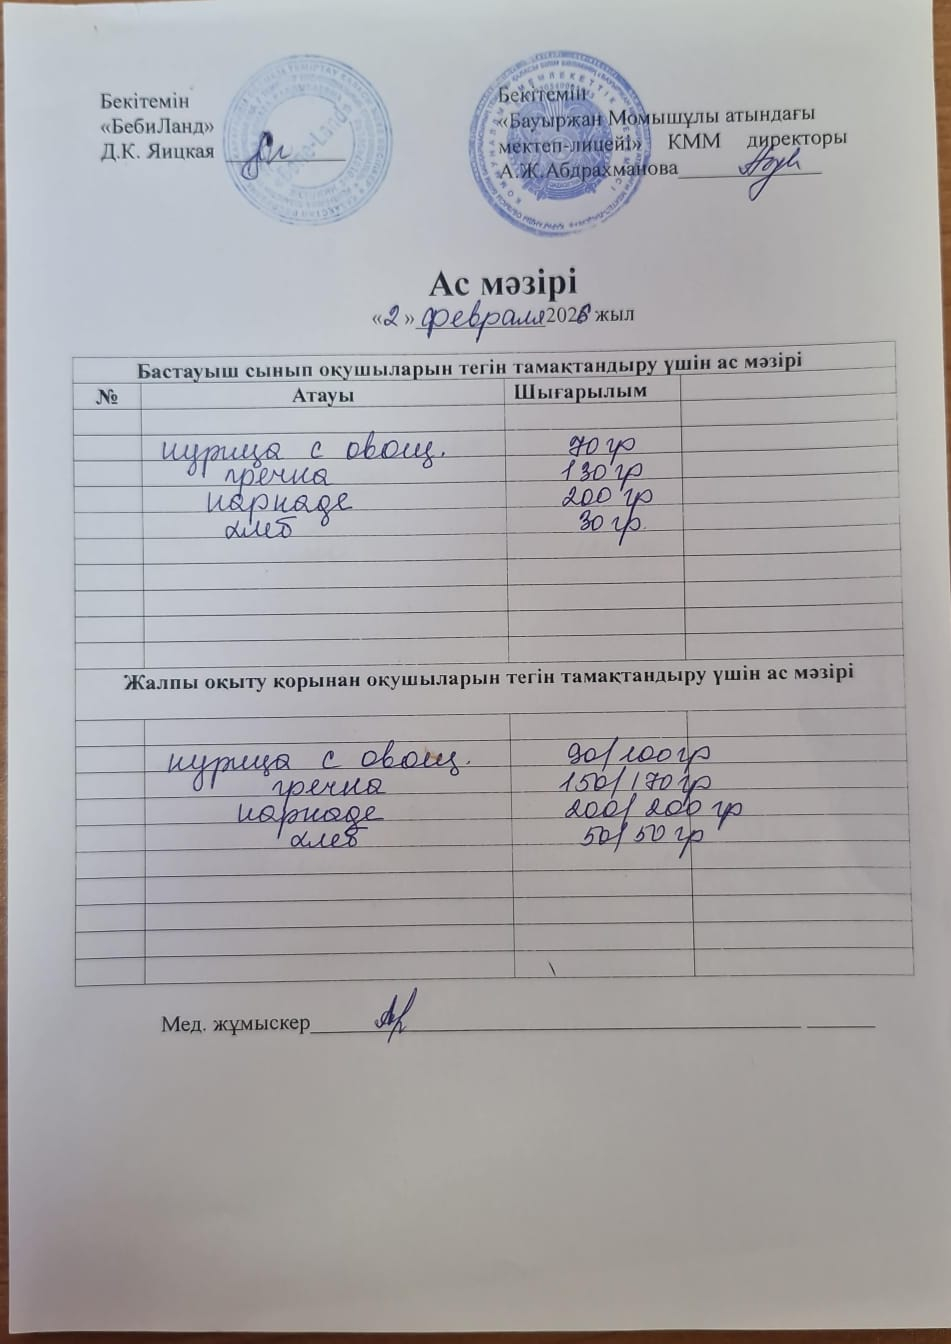 Бекітемін
«БебиЛанд»
Д.К. Яицкая
Бекітемін
«Бауыржан Момышұлы атындағы
мектеп-лицейі» КММ директоры
А.Ж.Абдрахманова
Ас мәзірі
«2» февраля 2026 жыл
Бастауыш сынып оқушыларын тегін тамақтандыру үшін ас мәзірі
№ Атауы Шығарылым
курица с овощ. 70 гр
гречка 130 гр
каркаде 200 гр
хлеб 30 гр.
Жалпы оқыту қорынан оқушыларын тегін тамақтандыру үшін ас мәзірі
курица с овощ. 90/100 гр
гречка 150/170 гр
каркаде 200/200 гр
хлеб 50/50 гр
Мед. жұмыскер